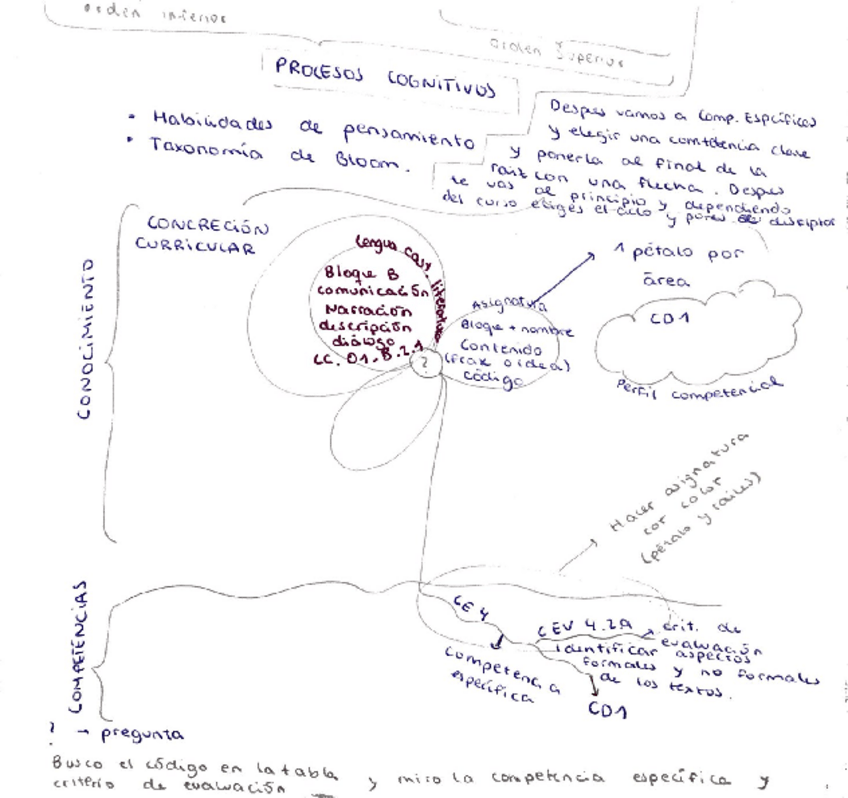 orden inferior
orden superior
PROCESOS COGNITIVOS
• Habilidades de pensamiento
• Taxonomía de Bloom.
Despues vamos a Comp. Específicas
y elegir una comtdencia clave
y ponerla al final de la
raiz con una flecha. Despues
te vas al principio y dependiendo
del curso eliges el ciclo y pones descriptor
CONCRECIÓN
CURRICULAR
CONOCIMIENTO
Lengua cast. literatura
Bloque B
comunicación
Narración
descripción
diálogo
LC. 01. B.2.1
?
Asignatura
Bloque + nombre
Contenido
(frase o idea)
código
1 pétalo por
área
CD1
Perfil competencial
Hacer asignatura
por color
(pétalo y raíces)
COMPETENCIAS
CE 4
Competencia
específica
CEV 4.2A
crit. de
evaluación
identificar aspectos
formales y no formales
de los textos.
CD1
? → pregunta
Busco el código en la tabla y miro la competencia específica y
criterio de evaluación